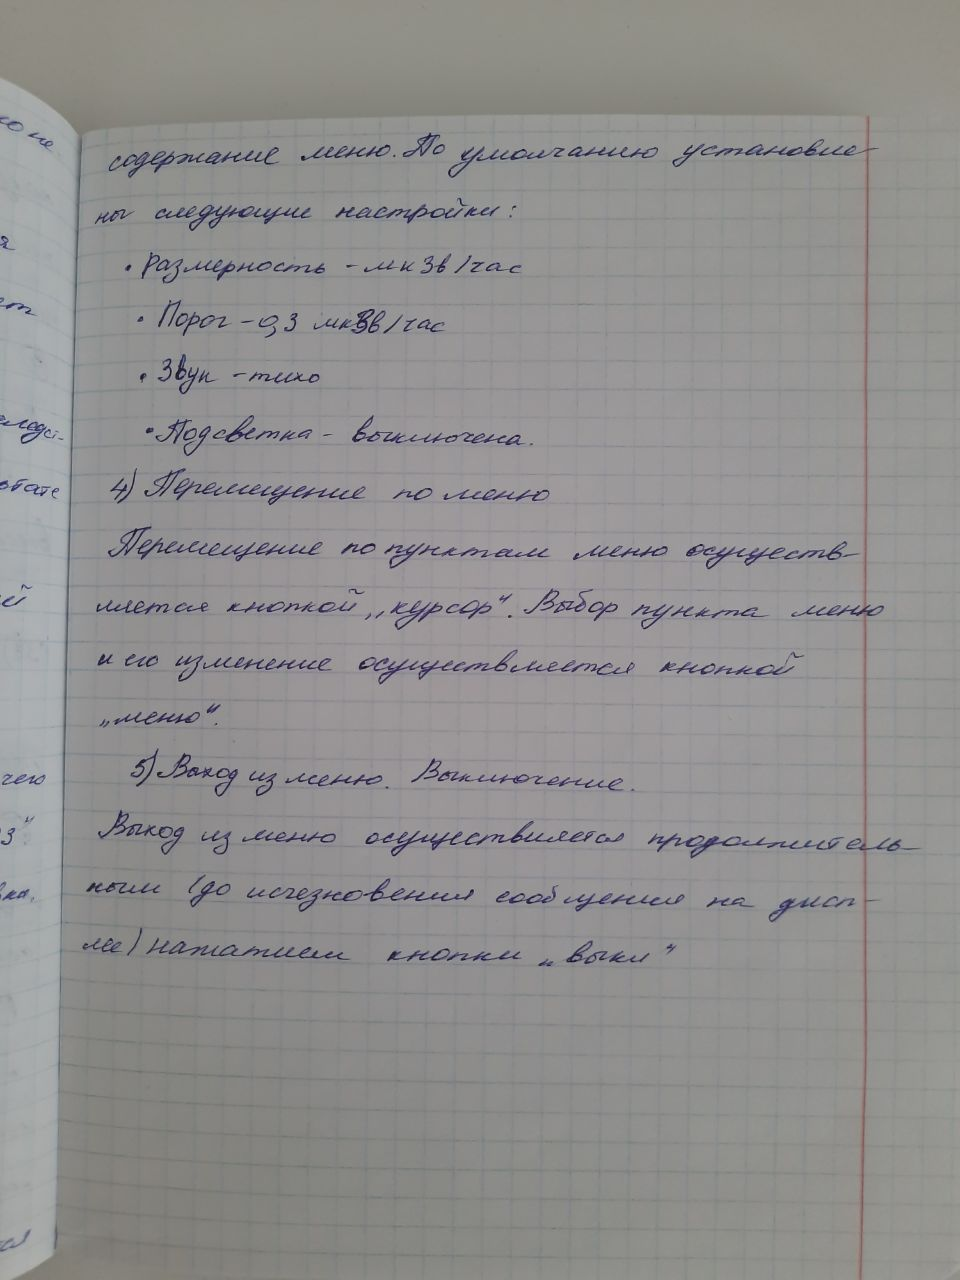 содержание меню. По умолчанию установле-
ны следующие настройки:
• Размерность - мкЗв/час
• Порог - 0,3 мкЗв/час
• Звук - тихо
• Подсветка - выключена.
4) Перемещение по меню
Перемещение по пунктам меню осуществ-
ляется кнопкой „курсор". Выбор пункта меню
и его изменение осуществляется кнопкой
„меню".
5) Выход из меню. Выключение.
Выход из меню осуществляется продолжитель-
ным (до исчезновения сообщения на дисп-
лее) нажатием кнопки „выкл"